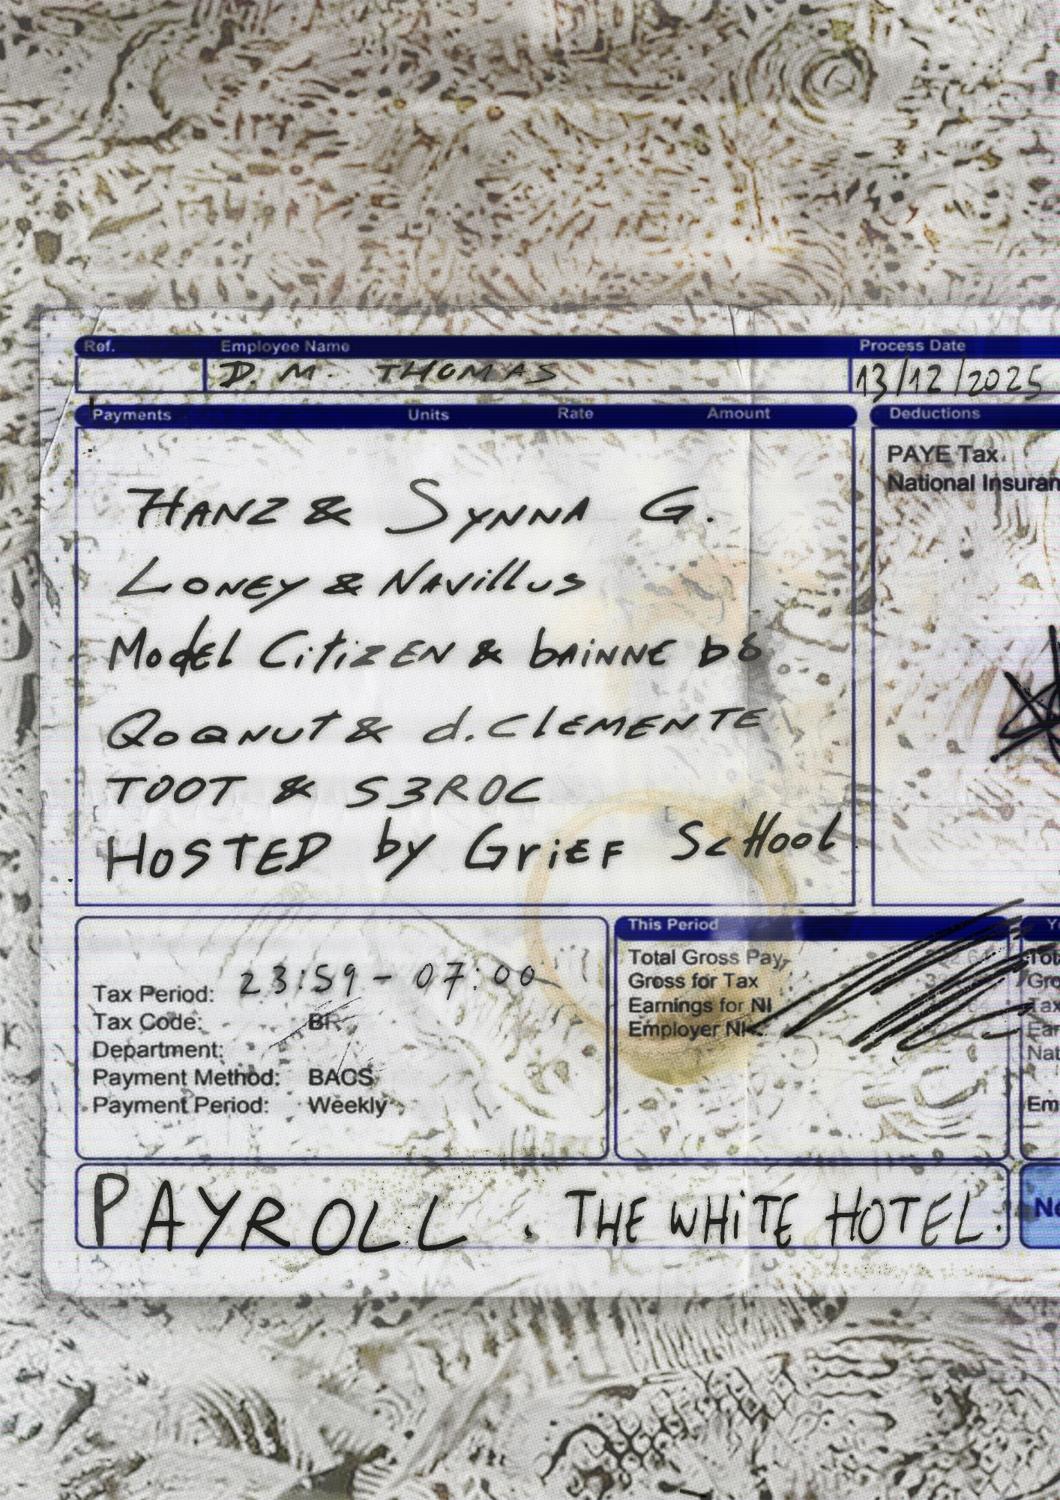 Ref. Employee Name Process Date
D. M. THOMAS 13/12/2025
Payments Units Rate Amount Deductions
PAYE Tax
National Insuran
HANZ & SYNNA G.
LONEY & NAVillUS
Model CitiZEN & bAINNE bó
QOQNUT & d.CLEMENTE
TOOT & S3ROC
HOSTED by GriEF ScHool
This Period
Total Gross Pay
Gross for Tax
Earnings for NI
Employer NI
Tax Period: 23:59 - 07:00
Tax Code: BR
Department:
Payment Method: BACS
Payment Period: Weekly
PAYROLL . THE WHiTE HOTEL.